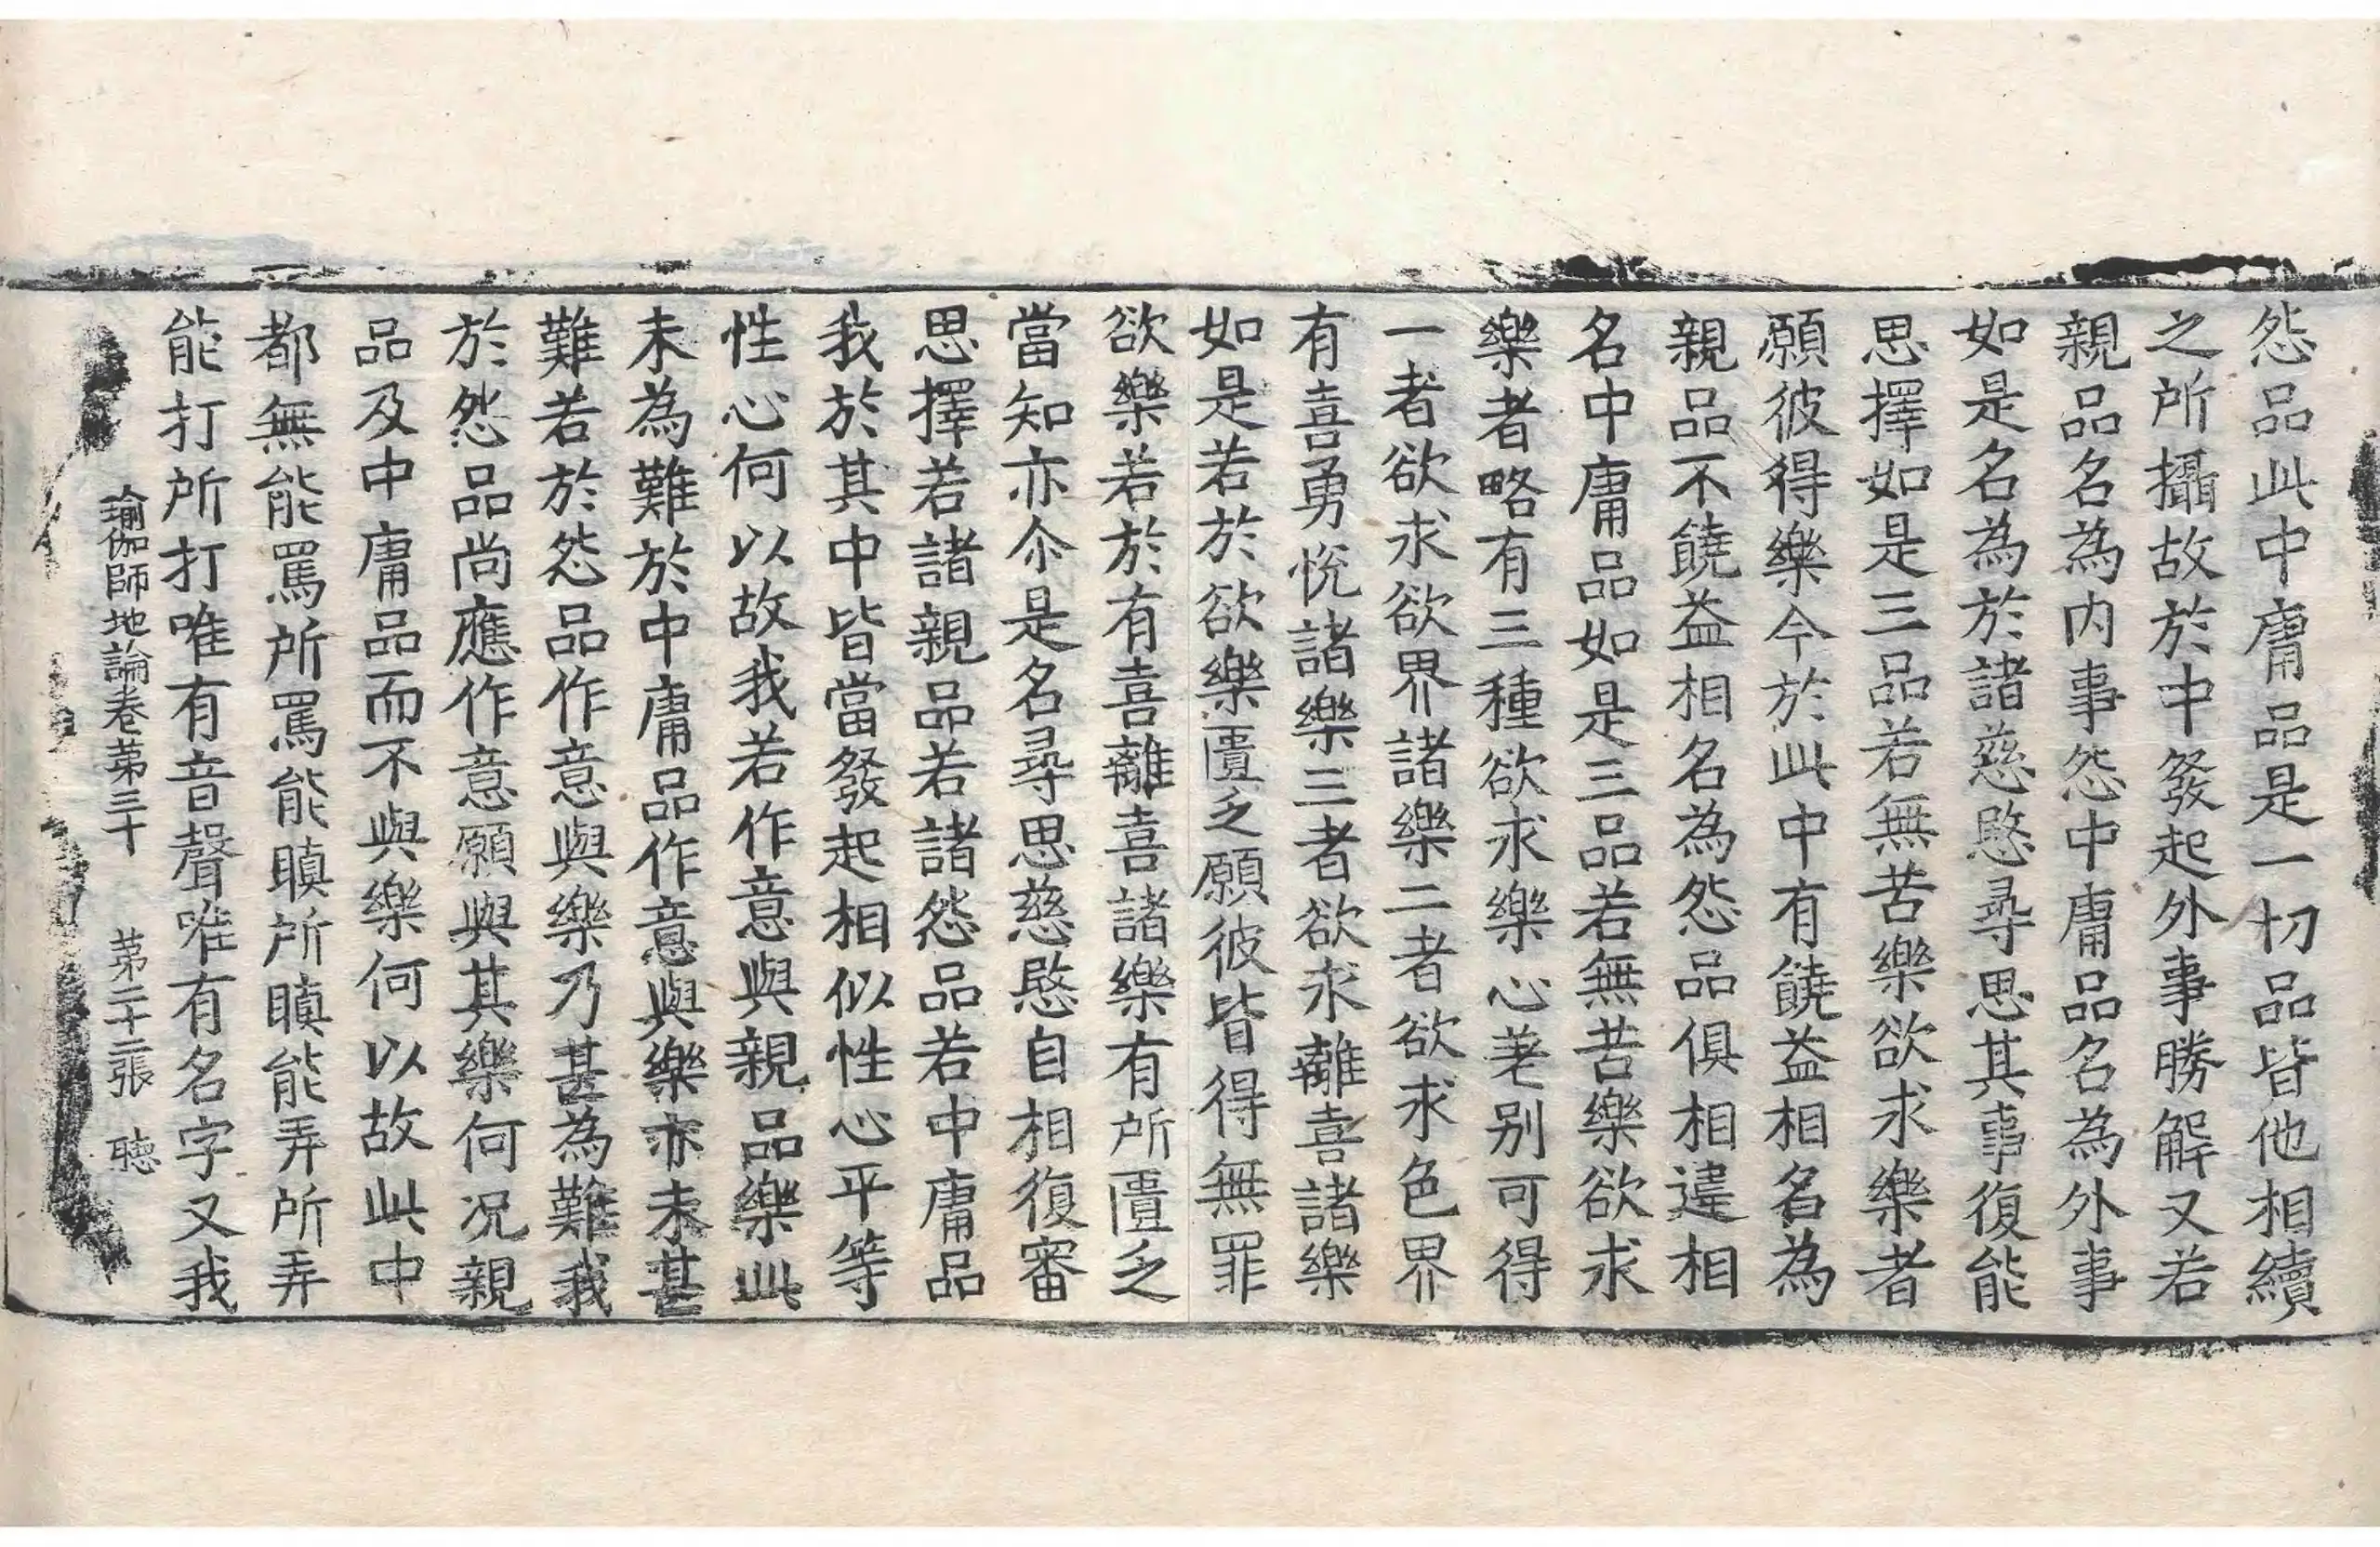 怨品此中庸品是一切品皆他相續
之所攝故於中發起外事勝解又若
親品名為内事怨中庸品名為外事
如是名為於諸慈愍尋思其事復能
思擇如是三品若無苦樂欲求樂者
願彼得樂今於此中有饒益相名為
親品不饒益相名為怨品俱相違相
名中庸品如是三品若無苦樂欲求
樂者略有三種欲求樂心差别可得
一者欲求欲界諸樂二者欲求色界
有喜勇悅諸樂三者欲求離喜諸樂
如是若於欲樂匱乏願彼皆得無罪
欲樂若於有喜離喜諸樂有所匱乏
當知亦尒是名尋思慈愍自相復審
思擇若諸親品若諸怨品若中庸品
我於其中皆當發起相似性心平等
性心何以故我若作意與親品樂此
未為難於中庸品作意與樂亦未甚
難若於怨品作意與樂乃甚為難我
於怨品尚應作意願與其樂何况親
品及中庸品而不與樂何以故此中
都無能罵所罵能瞋所瞋能弄所弄
能打所打唯有音聲唯有名字又我
瑜伽師地論卷第三十 第二十二張 聴